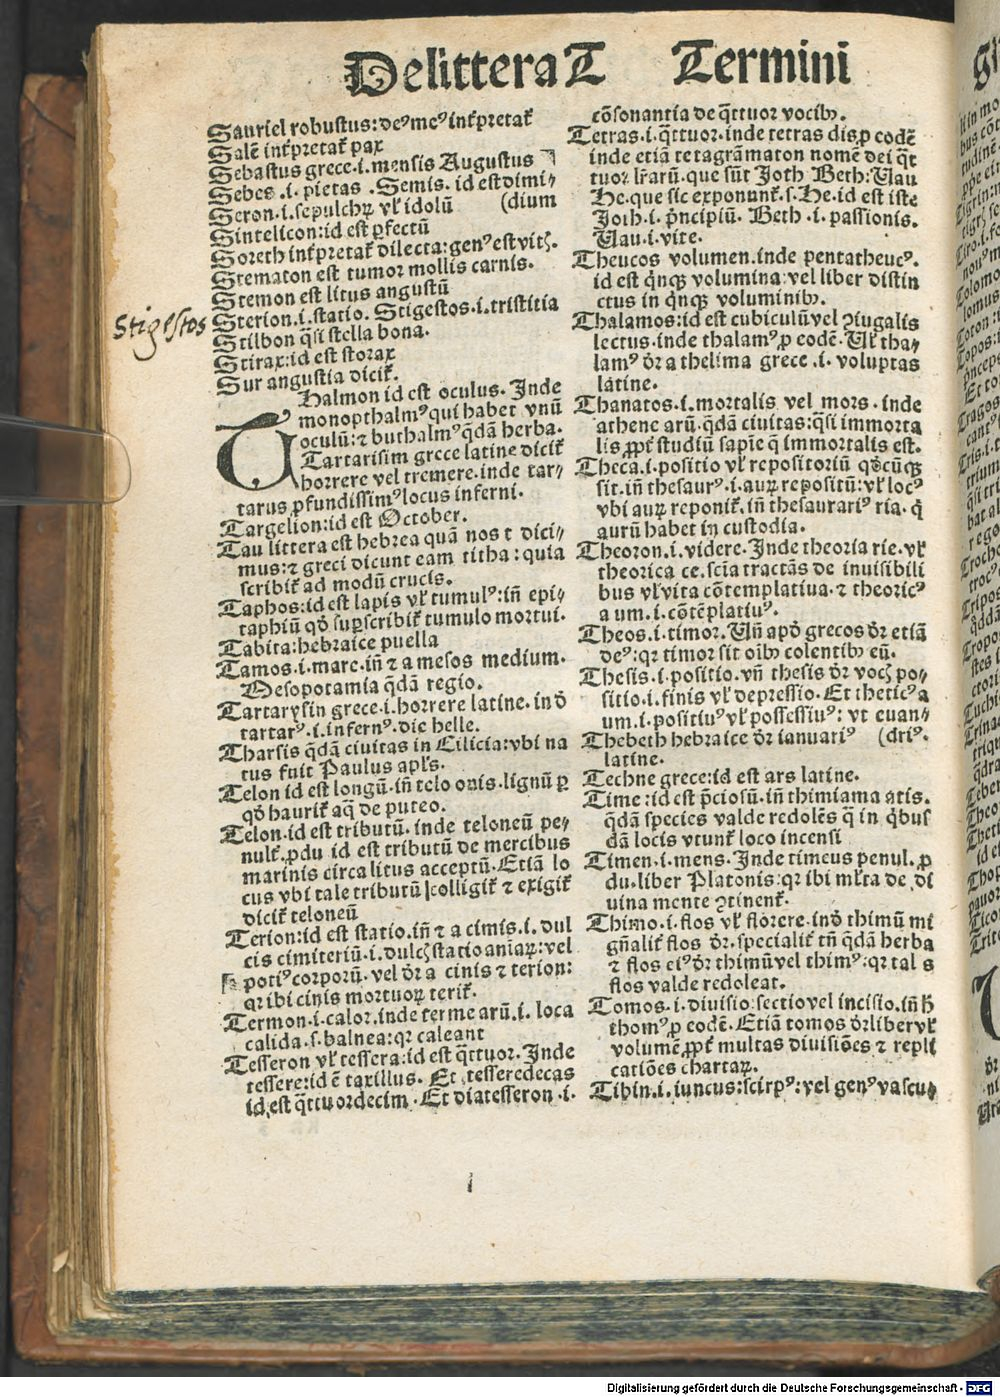 De littera T Termini
Sauriel robustus: deꝰ meꝰ int̃pretat̃
Salẽ int̃pretat̃ pax
Sebastus grece .i. mensis Augustus
Sebes .i. pietas . Semis. id est dimi⸗
Seron .i. sepulchꝝ vl̃ idolũ (dium
Sintelicon: id est ꝑfectũ
Soreth int̃pretat̃ dilecta: genꝰ est vitꝭ.
Strematon est tumor mollis carnis.
Stemon est litus angustũ
Stigestos
Sterion .i. statio. Stigestos .i. tristitia
Stilbon q̃si stella bona.
Stirax: id est storax
Sur angustia dicit̃.
Thalmon id est oculus. Inde
monopthalmꝰ qui habet vnũ
oculũ: ⁊ buthalmꝰ q̃dã herba.
Tartarisim grece latine dicit̃
horrere vel tremere. inde tar⸗
tarus ꝓfundissimꝰ locus inferni.
Targelion: id est October.
Tau littera est hebrea quã nos t dici⸗
mus: ⁊ greci dicunt eam titha: quia
scribit̃ ad modũ crucis.
Taphos: id est lapis vl̃ tumulꝰ: iñ epi⸗
taphiũ qď suꝑscribit̃ tumulo mortui.
Tabita: hebraice puella
Tamos .i. mare. iñ ⁊ a mesos medium.
Mesopotamia q̃dã regio.
Tartarysin grece .i. horrere latine. inď
tartarꝰ .i. infernꝰ. dic helle.
Tharsis q̃dã ciuitas in Cilicia: vbi na
tus fuit Paulus apl̃s.
Telon id est longũ. iñ telo onis. lignũ ꝑ
qď haurit̃ aq̃ de puteo.
Telon. id est tributũ. inde teloneũ pe⸗
nult̃. ꝓdu id est tributũ de mercibus
marinis circa litus acceptũ. Etiã lo
cus vbi tale tributũ colligit̃ ⁊ exigit̃
dicit̃ teloneũ
Terion: id est statio. iñ ⁊ a cimis .i. dul
cis cimiteriũ .i. dulcꝭ statio aniaꝝ: vel
potiꝰ corporũ. vel dr̃ a cinis ⁊ terion:
qr ibi cinis mortuoꝝ terit̃.
Termon .i. calor. inde terme arũ .i. loca
calida .s. balnea: qr caleant
Tesseron vl̃ tessera: id est q̃ttuor. Inde
tessere: id ẽ taxillus. Et tesseredecas
id est q̃ttuordecim. Et diatesseron .i.
cõsonantia de q̃ttuor vocibꝰ.
Tetras .i. q̃ttuor. inde tetras dis ꝓ eodẽ
inde etiã tetagrãmaton nomẽ dei q̃t
tuor lr̃arũ. que sũt Joth Beth: Uau
He. que sic exponunt̃. s. He. id est iste
Joth .i. pñcipiũ. Beth .i. passionis.
Uau .i. vite.
Theucos volumen. inde pentatheucꝰ.
id est q̃nqꝫ volumina: vel liber distin
ctus in q̃nqꝫ voluminibꝰ.
Thalamos: id est cubiculũ vel ꝯiugalis
lectus. inde thalamꝰ ꝓ eodẽ. Vl̃ tha⸗
lamꝰ dr̃ a thelima grece .i. voluptas
latine.
Thanatos .i. mortalis vel mors. inde
athene arũ. q̃dã ciuitas: q̃si immorta
lis ꝓpt̃ studiũ sapie q̃ immortalis est.
Theca .i. positio vl̃ repositoriũ qďcũqꝫ
sit. iñ thesaurꝰ .i. auꝝ repositũ: vl̃ locꝰ
vbi auꝝ reponit̃. iñ thesaurariꝰ ria. q̇
aurũ habet in custodia.
Theoron .i. videre. Inde theoria rie. vl̃
theorica ce. scia tractãs de inuisibili
bus vl̃ vita cõtemplatiua. ⁊ theoricꝰ
a um .i. cõtẽplatiuꝰ.
Theos .i. timor. Uñ apď grecos dr̃ etiã
deꝰ: qr timor sit oibꝰ colentibꝰ eũ.
Thesis .i. positio. vñ thesis dr̃ vocꝭ po⸗
sitio .i. finis vl̃ depressio. Et theticꝰ a
um .i. positiuꝰ vl̃ possessiuꝰ: vt euan⸗
Thebeth hebraice dr̃ ianuariꝰ (driꝰ.
latine.
Techne grece: id est ars latine.
Time: id est p̃ciosũ. iñ thimiama atis.
q̃dã species valde redolẽs q̃ in q̇bus
dã locis vtunt̃ loco incensi
Timen .i. mens. Inde timeus penul. ꝓ
du. liber Platonis: qr ibi ml̃ta de di
uina mente ꝯtinent̃.
Thimo .i. flos vl̃ florere. inď thimũ mi
gñalit̃ flos dr̃. specialit̃ tñ q̃dã herba
⁊ flos eiꝰ dr̃ thimũ vel thimꝰ: qr tal s
flos valde redoleat.
Tomos .i. diuisio: sectio vel incisio. iñ ħ
thomꝰ ꝓ eodẽ. Etiã tomos dr̃ liber vl̃
volumẽ ꝓpt̃ multas diuisiões ⁊ repli
catiões chartaꝝ.
Tibin .i. iuncus: scirpꝰ: vel genꝰ vascu⸗
Digitalisierung gefördert durch die Deutsche Forschungsgemeinschaft - DFG